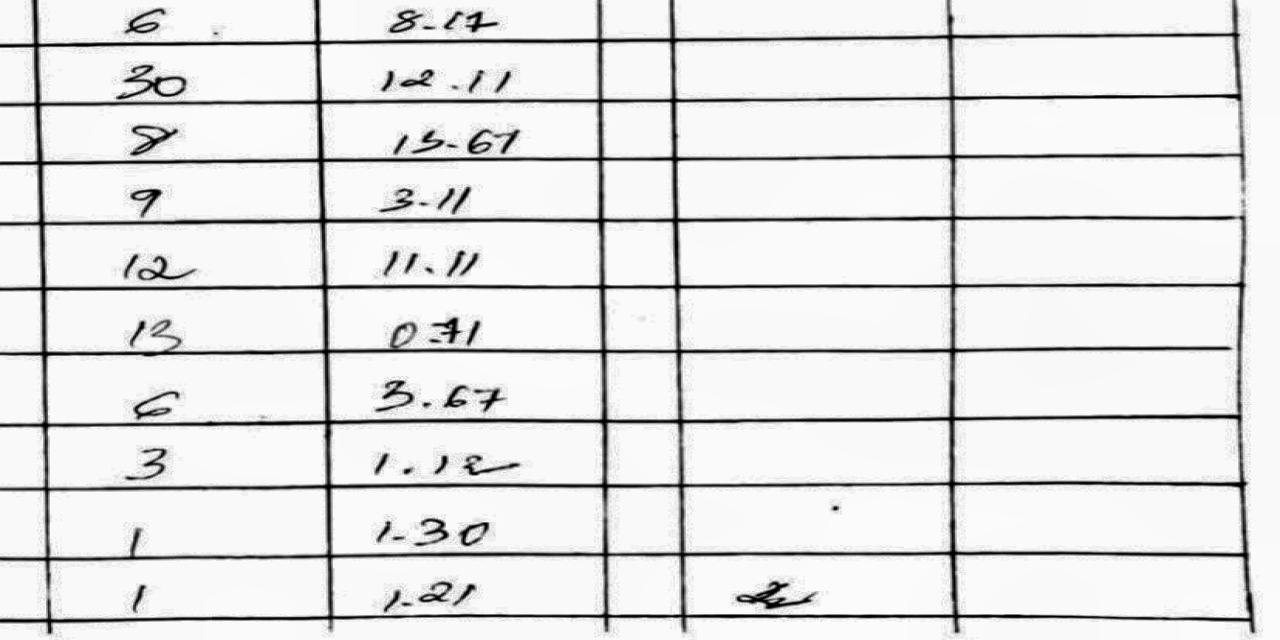 6 8-17
30 12.11
8 15-67
9 3-11
12 11.11
13 0.71
6 3.67
3 1.12
1 1-30
1 1-21